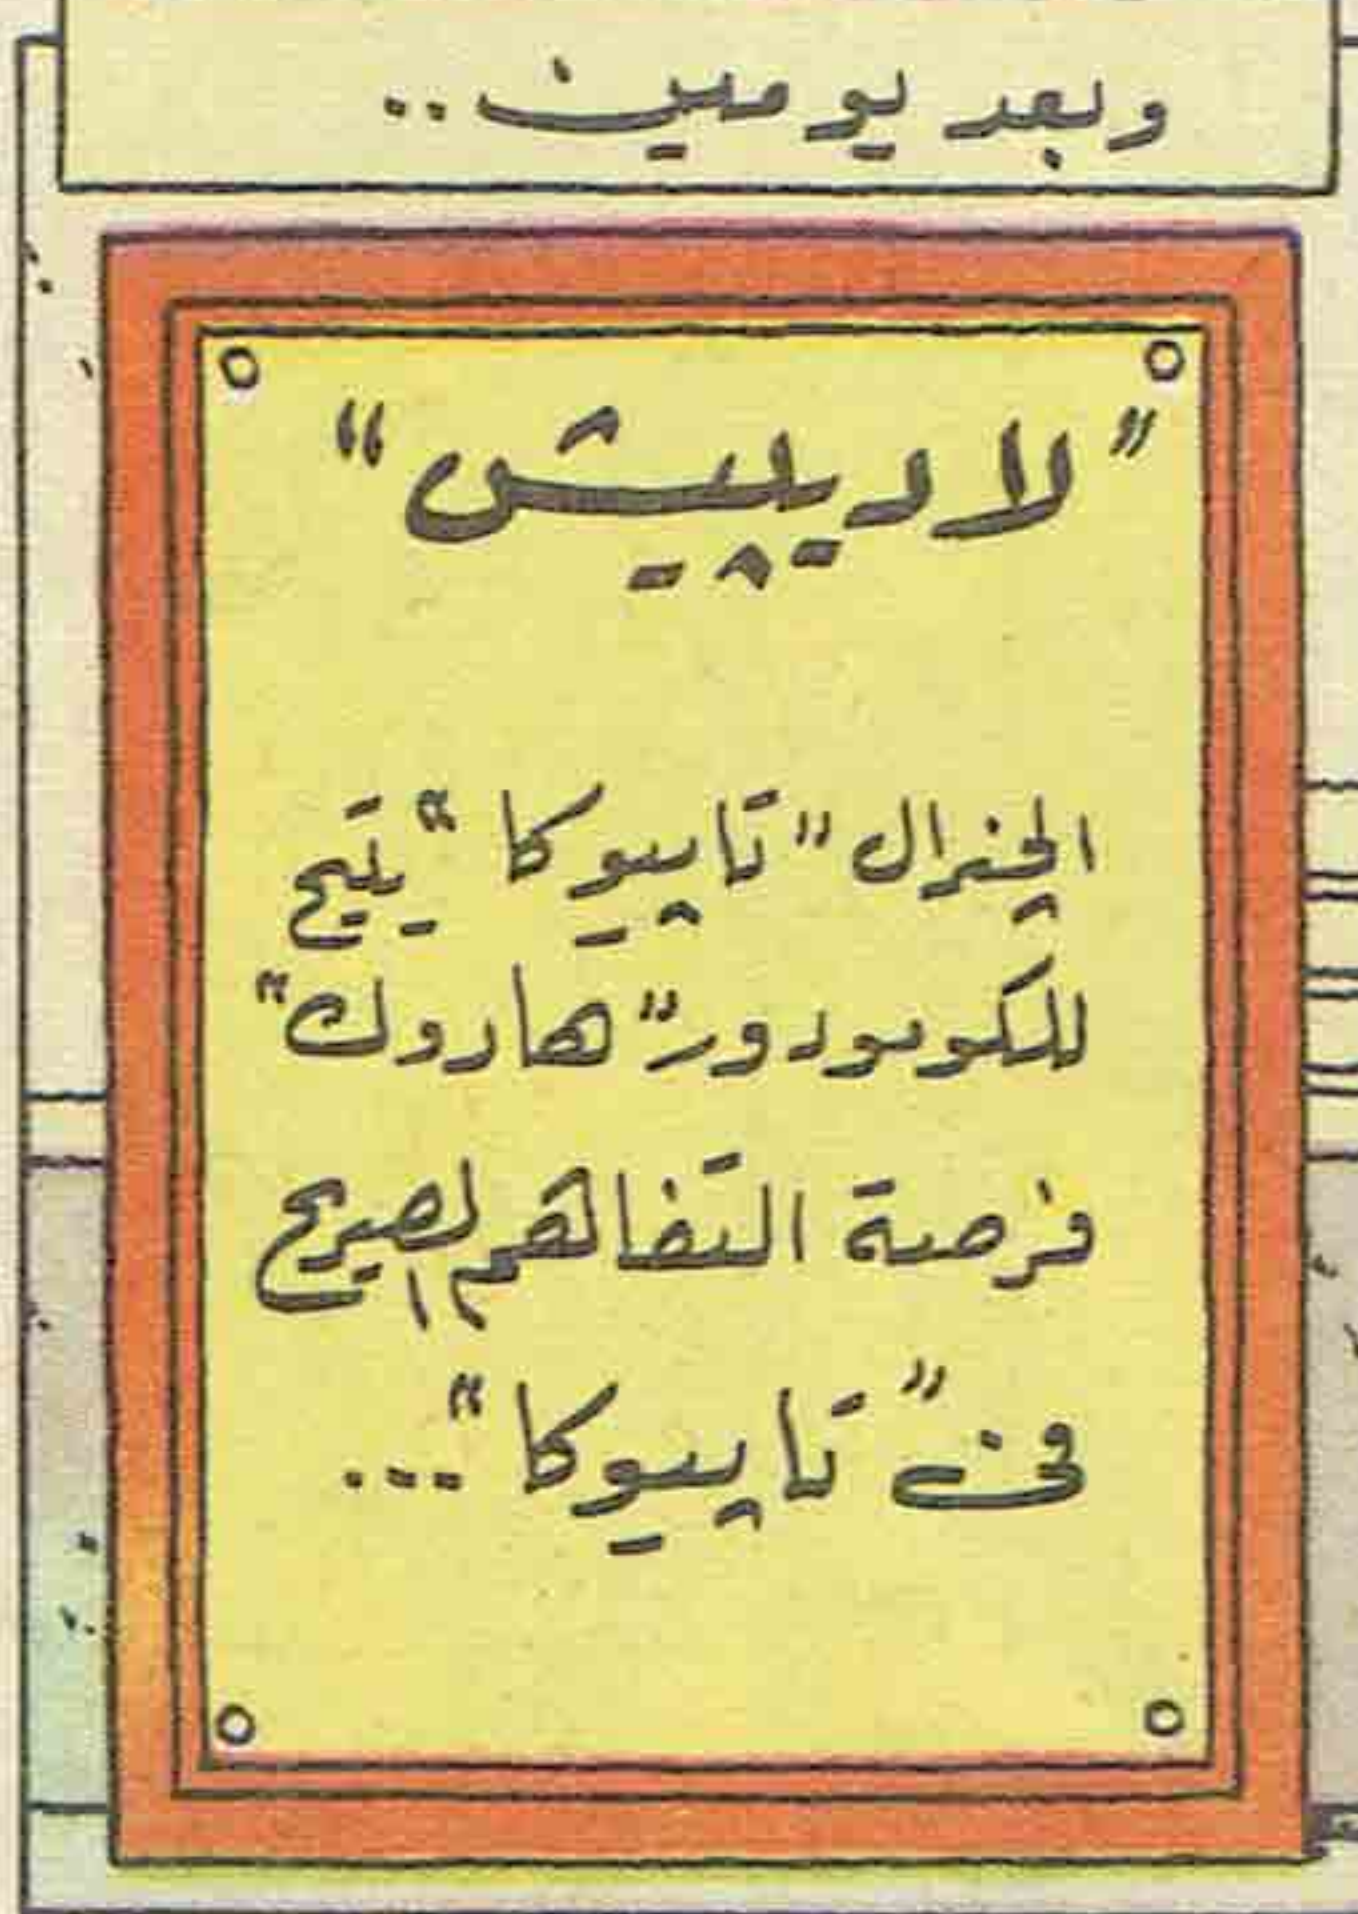 وبعد يومين ..
"لاديپيش"
الجنرال "تاپيوكا" يتيح
للكومودور "هادوك"
فرصة التفاهم الصريح
فى "تاپيوكا"...